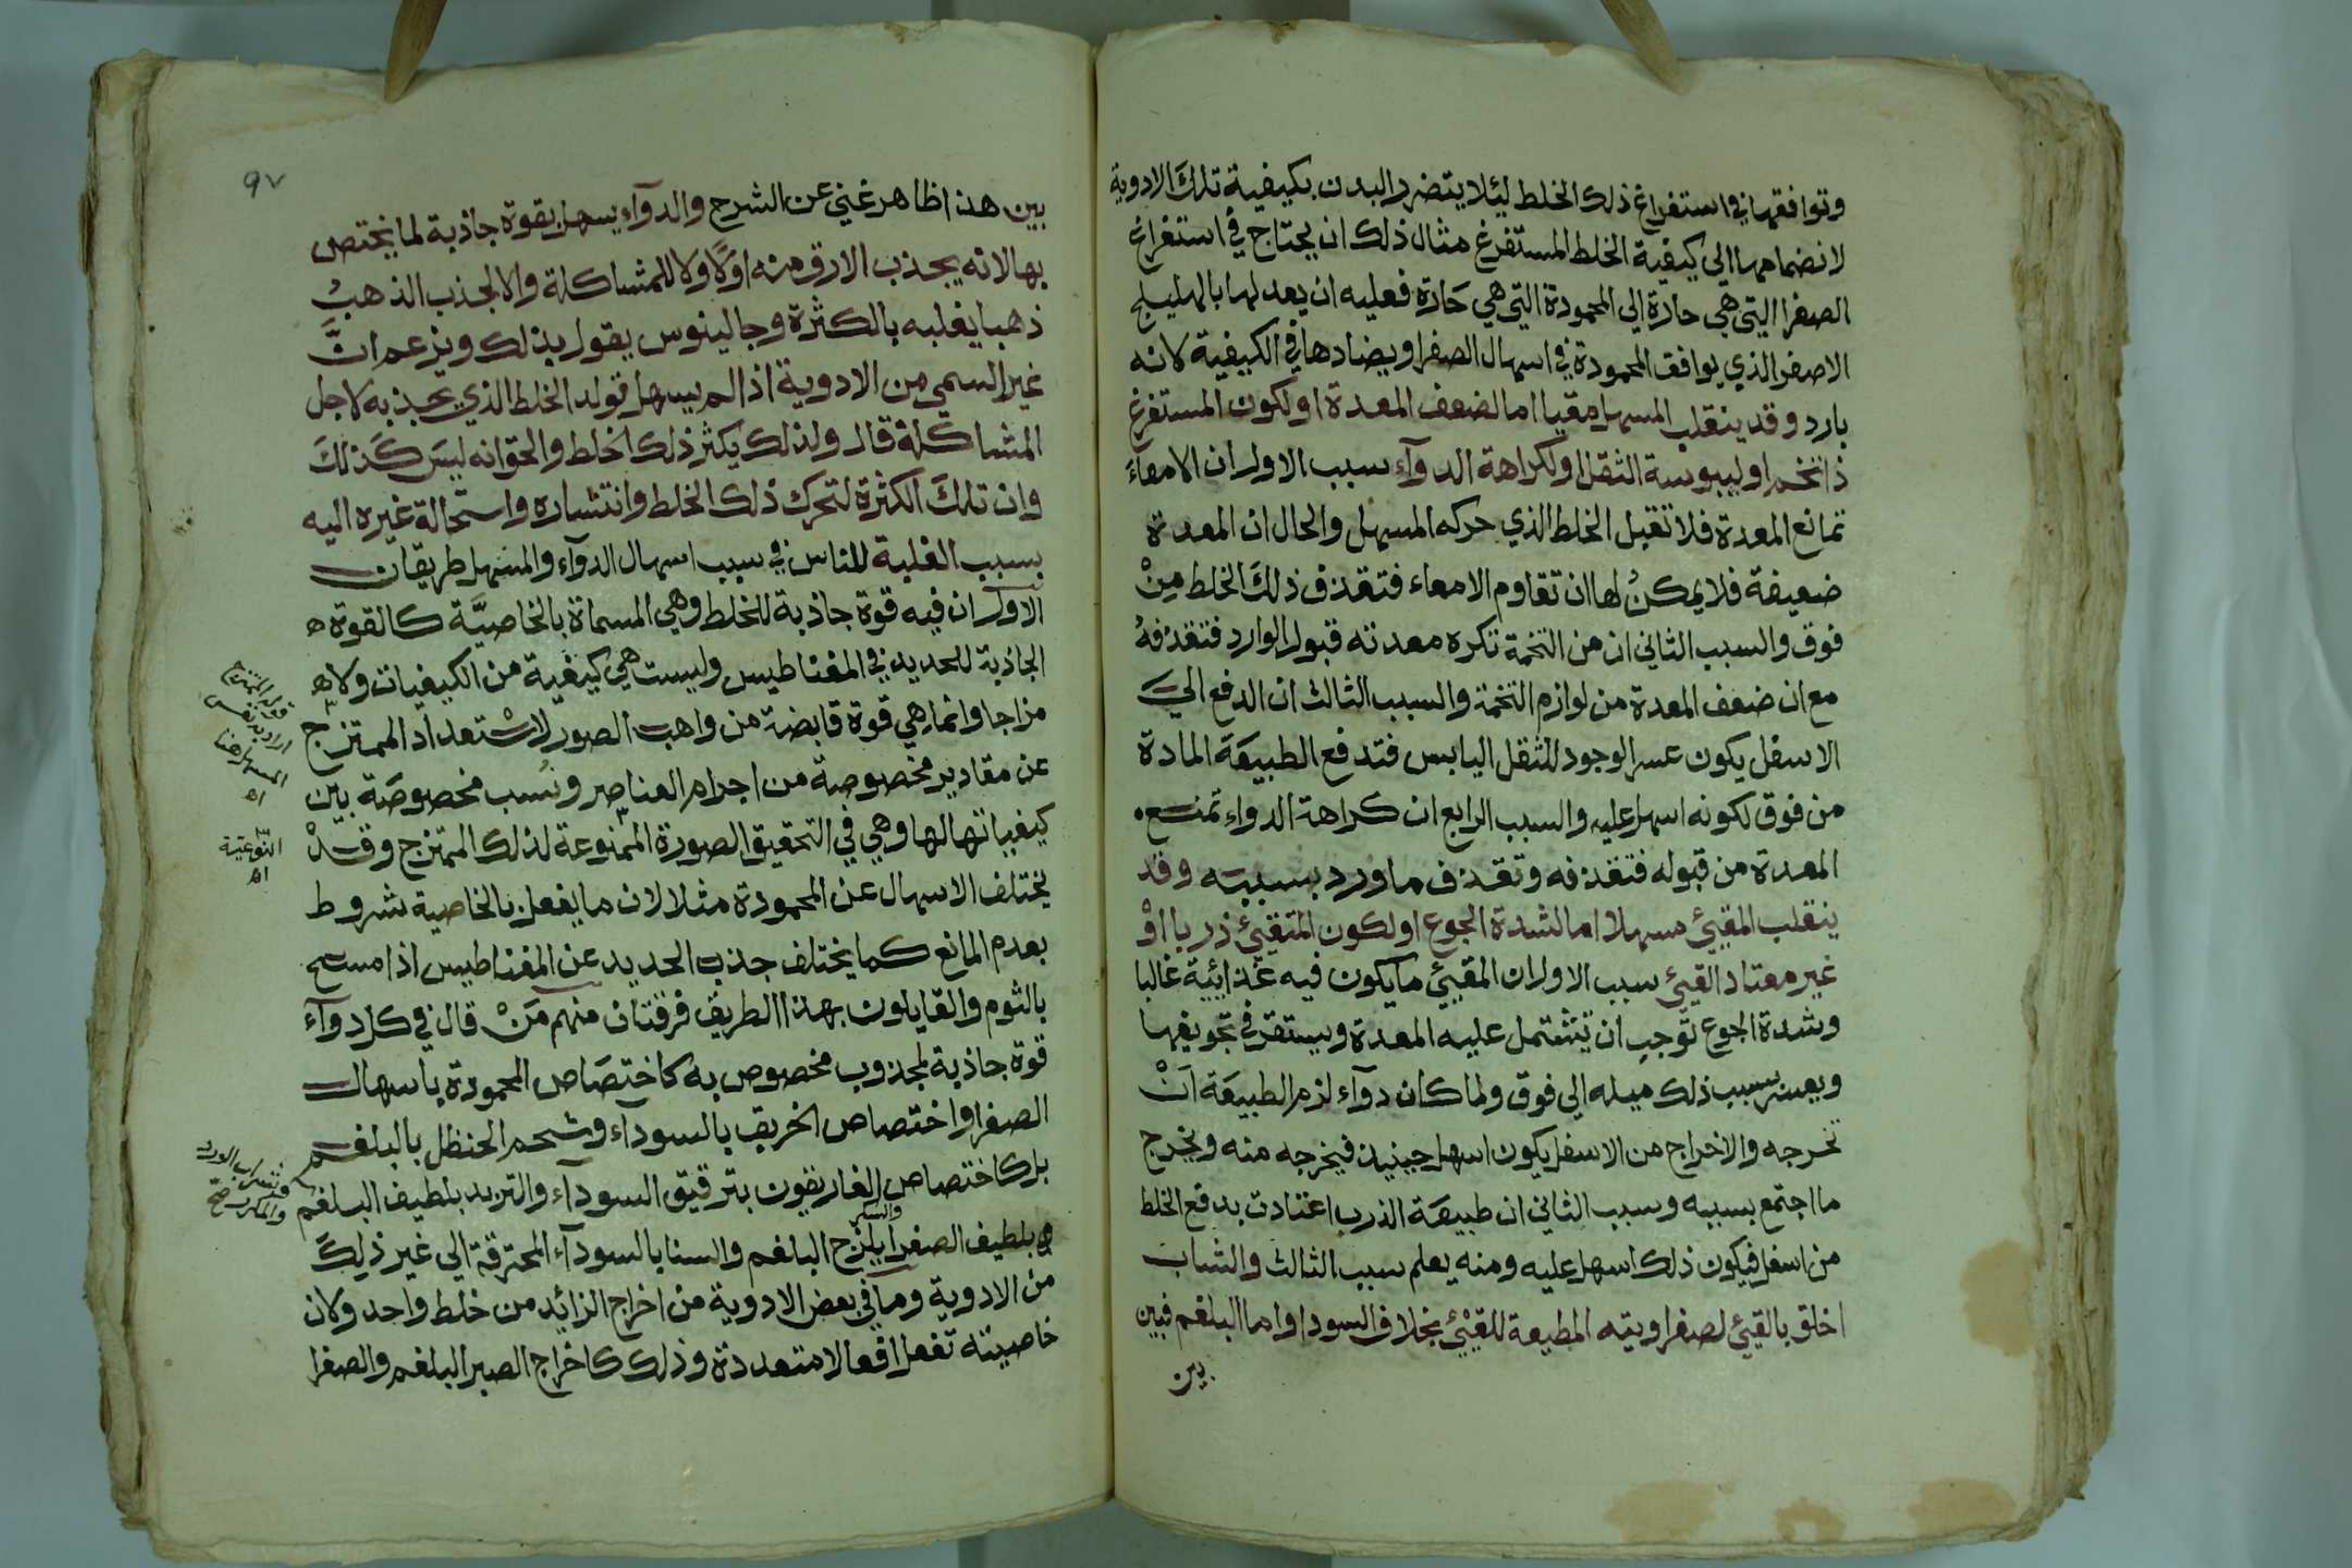 وتوافقها في استفراغ ذلك الخلط ليئلا يتضرر البدن بكيفية تلك الادوية
لانضمامها الى كيفية الخلط المستفرغ مثال ذلك ان يحتاج في استفراغ
الصفرا التي هي حارة الي المحمودة التي هي حَارة فعليه ان يعدلها بالهليلج
الاصفر الذي يوافق المحمودة في اسهال الصفرا ويضادها في الكيفية لانه
بارد وقد ينقلب المسهل مقيا اما لضعف المعدة او لكون المستفرغ
ذا تخم او ليبوسة الثقل او لكراهة الدوآء سبب الاول ان الامعاء
تمانع المعدة فلا تقبل الخلط الذي حركه المسهل والحال ان المعدة
ضعيفة فلا يمكنُ لها ان تقاوم الامعاء فتقذف ذلكَ الخلط مِنْ
فوق والسبب الثاني ان من التخمة تكره معدته قبول الوارد فتقذفهُ
مع ان ضعف المعدة من لوازم التخمة والسبب الثالث ان الدفع الي
الاسفل يكون عسر الوجود للثقل اليابس فتدفع الطبيعَة المادة
من فوق لكونه اسهل عليه والسبب الرابع ان كراهة الدواء تمنع
المعدة من قبوله فتقذفه وتقذف ما ورد بسببه وقد
ينقلب المقيئ مسهلا اما لشدة الجوع او لكون المتقيئ ذربا اوْ
غير معتاد القيئ سبب الاول ان المقيئ ما يكون فيه غذائية غالبا
وشدة الجوع توجب ان تشتمل عليه المعدة ويستقر في تجويفها
ويعسر بسبب ذلك ميله الي فوق ولما كان دوآء لزم الطبيعَة انْ
تخرجه والاخراج من الاسفل يكون اسهل حينيذ فيخرجه منه ويخرج
ما اجتمع بسببه وسبب الثاني ان طبيعَة الذرب اعتادت بدفع الخلط
من اسفل فيكون ذلك اسهل عليه ومنه يعلم سبب الثالث والشاب
اخلق بالقيئ لصفراويته المطيعة للقيئ بخلاف السودا واما البلغم فبين
بين
٩٧
بين هذا ظاهر غني عن الشرح والدوآء يسهل بقوة جاذبة لما يختص
بها لا انه يجذب الارق منه اوّلا ولا للمشاكلة والا لجذب الذهبُ
ذهبا يغلبه بالكثرة وجالينوس يقول بذلك ويزعم انَّ
غير السمي من الادوية اذا لم يسهل قولد الخلط الذي يجذبه لاجل
المشاكلة قال ولذلك يكثر ذلك الخلط والحق انه ليسَ كَذلكَ
وان تلكَ الكثرة لتحرك ذلك الخلط وانتشاره واستحالة غيره اليه
بسبب الغلبة للناس في سبب اسهال الدوآء والمسهل طريقان
الاول ان فيه قوة جاذبة للخلط وهي المسماة بالخاصيَّة كالقوة
الجاذبة للحديد في المغناطيس وليست هي كيفية من الكيفيات ولا
مزاجا وانما هي قوة قابضة من واهب الصور لاسْتعداد الممتزج
عن مقادير مخصوصة من اجرام العناصر ونُسب مخصوصَة بين
كيفياتها لها وهي في التحقيق الصورة الممنوعة لذلك الممتزج وقدْ
يختلف الاسهال عن المحمودة مثلا لان ما يفعل بالخاصية شروط
بعدم المانع كما يختلف جذب الحديد عن المغناطيس اذا مسح
بالثوم والقايلون بهذا الطريق فرقتان منهم مَنْ قال في كل دوآء
قوة جاذبة لمجذوب مخصوص به كاختصَاص المحمودة باسهال
الصفرا واختصاص الخربق بالسوداء وشحم الحنظل بالبلغم
بل كاختصاص الغاريقون بترقيق السودآء والتربد بلطيف البلغم
والسكر
بلطيف الصفرا بلزج البلغم والسنا بالسودآء المحترقة الي غير ذلِكَ
من الادوية وما في بعض الادوية من اخراج الزائد من خلط واحد ولان
خاصيته تفعل افعالا متعددة وذلك كاخراج الصبر البلغم والصفرا
قوله الممتزج
اراد به نفس
المسهل هنا
اه
النّوعية
اه
وشراب الورد
صح